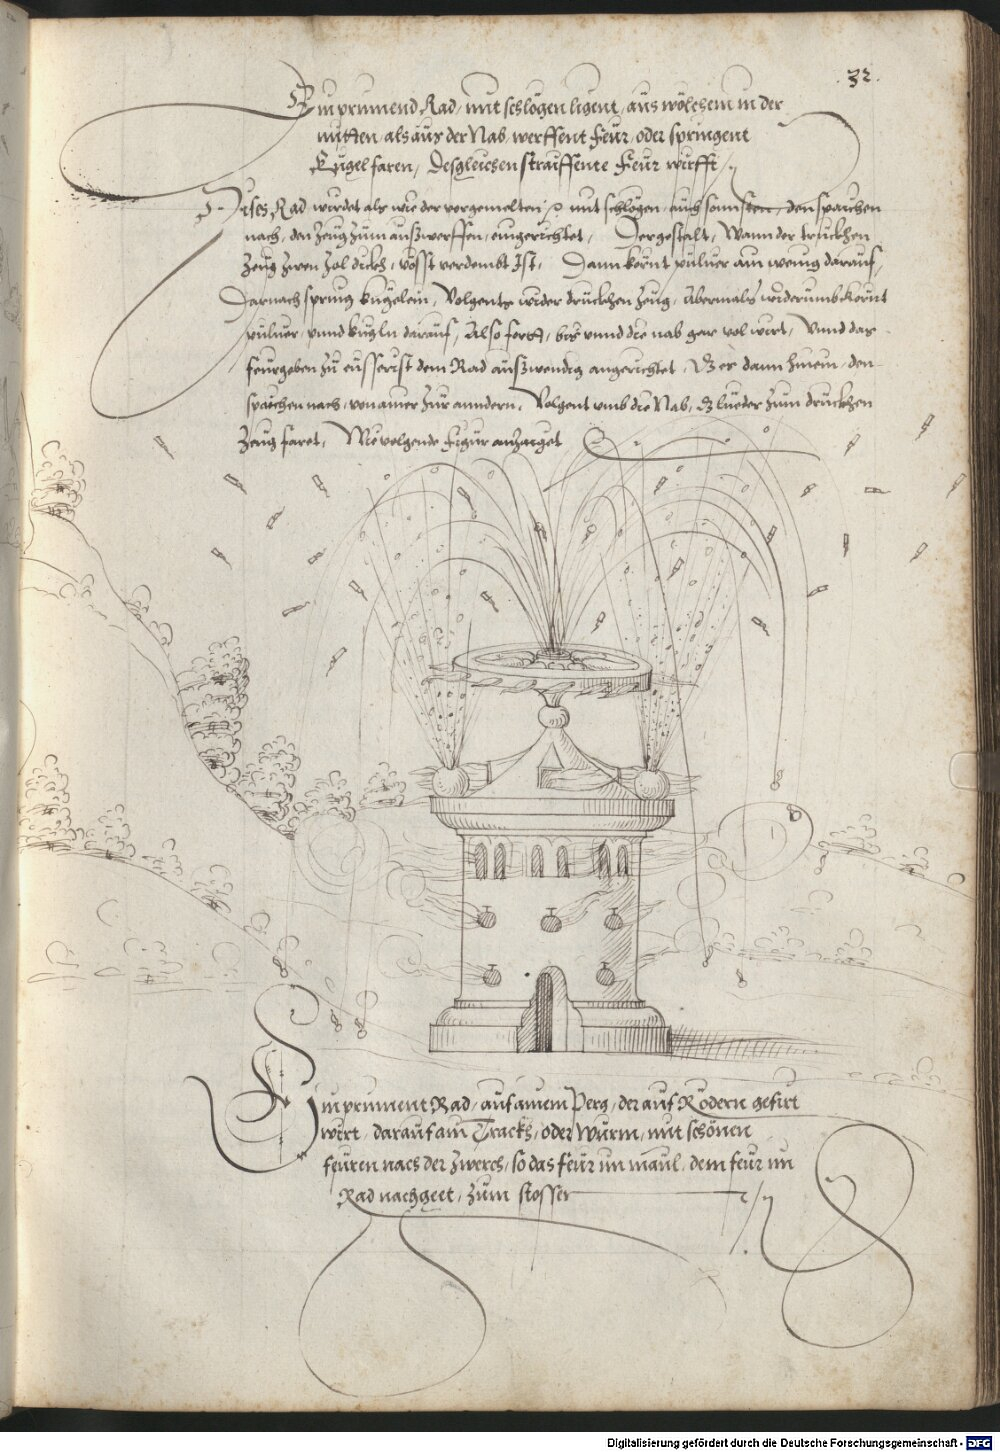 .32.
Ein prinnend Rad, mit schlögen ligent, aus wölchem in der
mitten, als aus der Nab, werffent Feür, oder springent
Kugel faren, Desgleichen straiffente Feür wirfft
Dises Rad wirdet als wie der vorgemelten, mit schlögen, auch sonnsten, den spaichen
nach, den Zeug zum außwerffen, eingerichtet, Dergestalt, Wann der truckhen
Zeug zwen Zol dickh, vösst verdembt Ist, Dann körnt puluer ain wenig darauf,
Darnach spring kugelein, Volgents wider druckhen Zeug, Abermals widerumb körnt
puluer, vnnd kugln darauf, Also fortt, bis vmd die nab gar vol wirt, Vnnd das
feürgeben zu eüsserist dem Rad außwendig angerichtet, Der dann hinein, den
spaichen nach, von ainer zur anndern, Volgent vmb die Nab, zum druckhen
Zeug faret, Wie volgende Figur anzaiget
Ein prinnent Rad, auf ainem Perg, der auf Rödern gefirt
wirt, darauf ain Trackh, oder Wurm, mit schönen
feüren nach der zwerch, so das feür im maul, dem feür im
Rad nachgeet, zum stosser
Digitalisierung gefördert durch die Deutsche Forschungsgemeinschaft - DFG